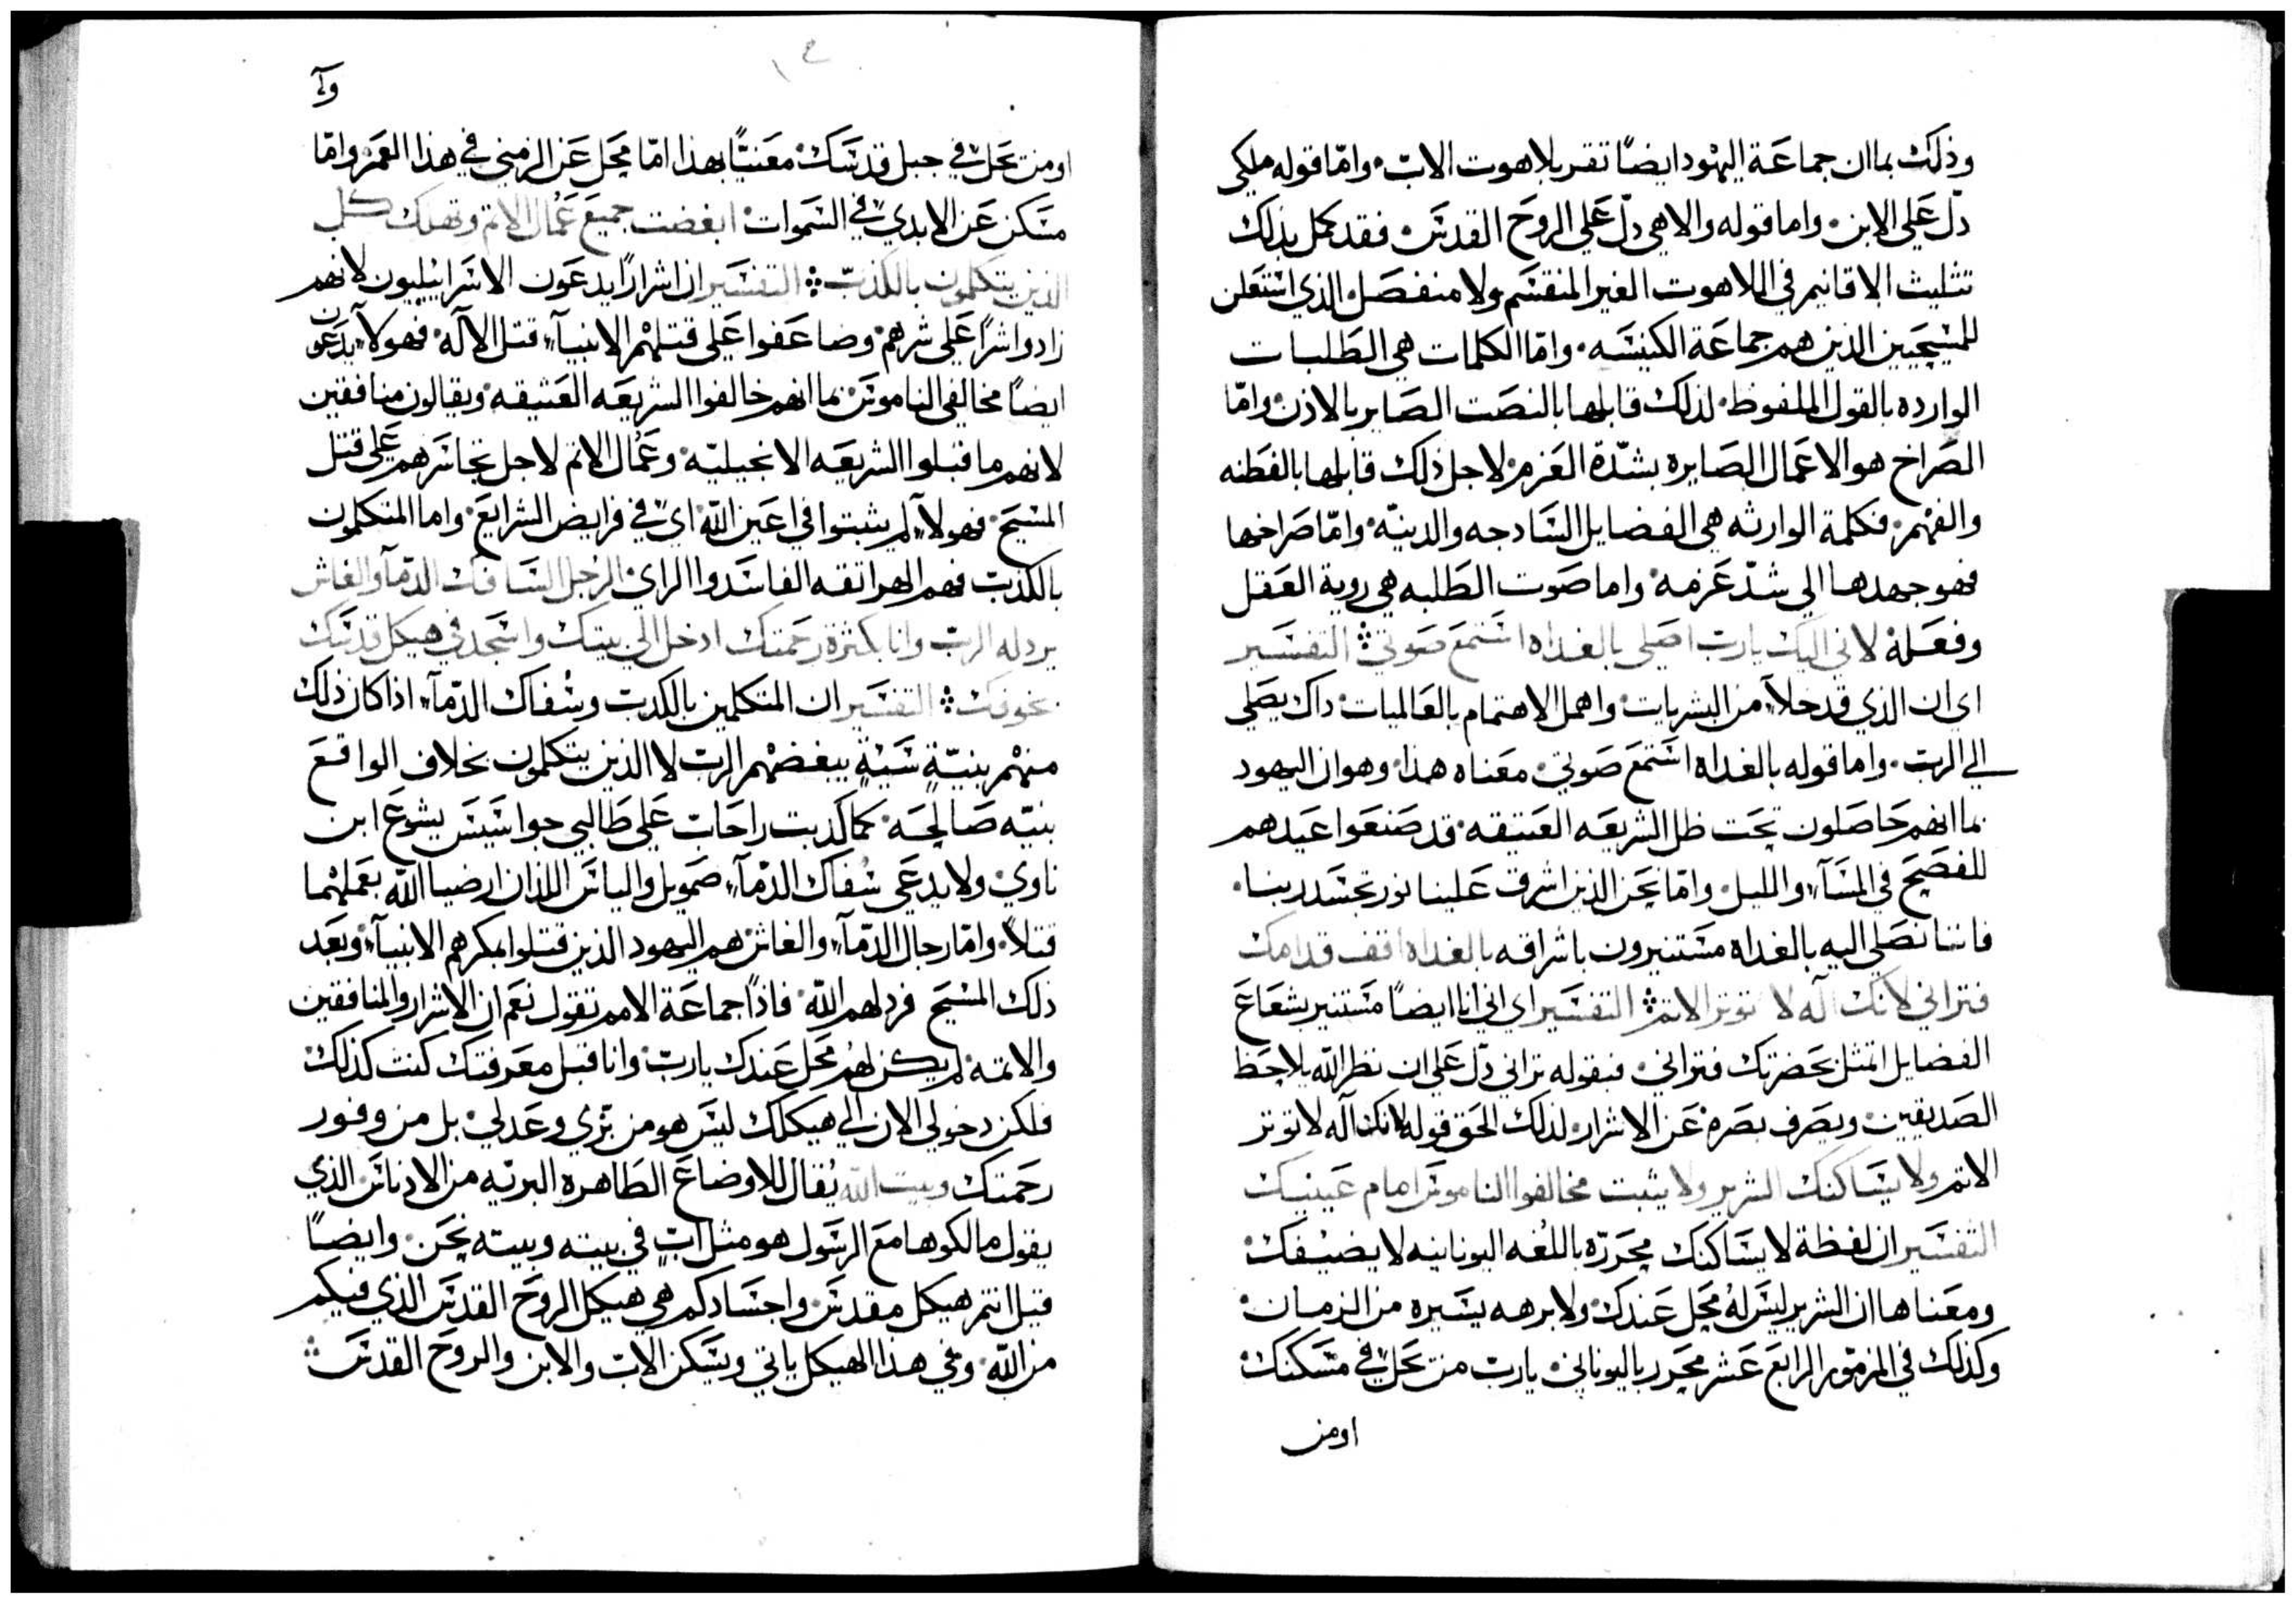 وذلك بما ان جماعة اليهود ايضًا تقر بلاهوت الاب. وامّا قوله ملكي
دلّ علي الابن. واما قوله والاهي دلّ علي الروح القدس. فقد كمل بذلك
تثليث الاقانيم في اللاهوت الغير المنقسم ولا منفصل الذي استعلن
للمسيحيين الذين هم جماعة الكنيسه. وامّا الكلمات هي الطلبات
الوارده بالقول الملفوظ. لذلك قابلها بالنصت الصاير بالاذن. وامّا
الصراخ هو الاعمال الصايره بشدّة العزم. لاجل ذلك قابلها بالفطنه
والفهم. فكلمة الوارثه هي الفضايل الساذجه والدينيّه. وامّا صراخها
فهو جهدها الي شدّ عزمه. واما صوت الطلبه هي روية العقل
وفعله. لاني اليك يارب اصلي بالغداه استمع صوتي. التفسير
اي ان الذي قد خلآ من البشريات. واهمل الاهتمام بالعالميات. داك يصلي
الي الرب. واما قوله بالغداه استمع صوتي. معناه هذا. وهو ان اليهود
بما انهم حاصلون تحت ظل الشريعه العتيقه. قد صنعوا عيدهم
للفصح في المسآء والليل. وامّا نحن الذين اشرق علينا نور تجسد ربنا.
فاننا نصلي اليه بالغداه مستنيرون باشراقه بالغداه اقف قدامك
فتراني لانك آله لا توثر الاثم. التفسير اي اني انا ايضًا مستنير بشعاع
الفضايل اتمثل بحضرتك فتراني. فبقوله تراني دلّ علي ان نظر الله يلاحظ
الصديقين. ويصرف بصره عن الاشرار. لذلك الحق قوله لانك آله لا توثر
الاثم ولا يساكنك الشرير ولا يثبت مخالفوا الناموس امام عينيك
التفسير ان لفظة لا يساكنك محررّه باللغه اليونانيه لا يضيفك.
ومعناها ان الشرير ليس له محل عندك. ولا برهه يسيره من الزمان.
وكذلك في المزمور الرابع عشر محرر باليوناني. يارب من يحل في مسكنك.
اومن
او من يحل في جبل قدسك. معنيًّا بهذا امّا محل عن الزمني في هذا العمر. وامّا
مسكن عن الابدي في السموات. ابغضت جميع عمال الاثم وتهلك كل
الذين يتكلمون بالكذب. التفسير ان اشرارًا يدعون الاسراييليون لانهم
زادوا شرًا علي شرهم. وضاعفوا علي قتلهم الانبيآء قتل الاله. فهولآء يدعون
ايضًا مخالفي الناموس. بما انهم خالفوا الشريعه العتيقه. ويقالون منافقين
لانهم ما قبلوا الشريعه الانجيليّه. وعمال الاثم لاجل تجاسرهم علي قتل
المسيح. فهولآء لم يثبتوا في اعين الله. اي في فرايض الشرايع. واما المتكلمون
بالكذب فهم الهراتقه الفاسدوا الراي. الرجل السافك الدمآء والغاش
يردله الرب وانا بكثرة رحمتك ادخل الي بيتك واسجد في هيكل قدسك
بخوفك. التفسير ان المتكلمين بالكدب وسُفاك الدمآء. اذا كان ذلك
منهم بنيّة سيّةٍ يبغضهم الرب لا الذين يتكلمون بخلاف الواقع
بنيّه صالحه. كما كدبت راحاب علي طالبي جواسيس يشوع ابن
ناوي. ولا يدعي سُفاك الدمآء. صمويل والياس اللذان ارضيا الله بعملهما
قتلاً. وامّا رجال الدمآء والغاش. هم اليهود الذين قتلوا بمكرهم الانبيآء. وبعد
ذلك المسيح فردلهم الله. فاذًا جماعة الامم تقول نعم ان الاشرار والمنافقين
والاثمه لم يكن لهم محل عندك يارب. وانا قبل معرفتك كنت كذلك.
فلكن دخولي الان الي هيكلك ليس هو من برّي وعدلي. بل من وفور
رحمتك وبيت الله يُقال للاوضاع الطاهره البريّه من الادناس. الذي
يقول مالكوها مع الرسول هو مثل ابٍ في بيته وبيته نحن. وايضًا
قيل انتم هيكل مقدس. واجسادكم هي هيكل الروح القدس الذي فيكم
من الله. وفي هذا الهيكل ياتي ويسكن الاب والابن والروح القدس.